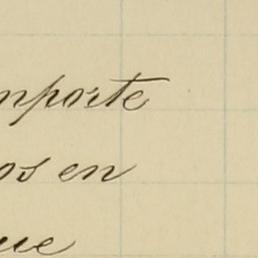 mporte
os en
ue